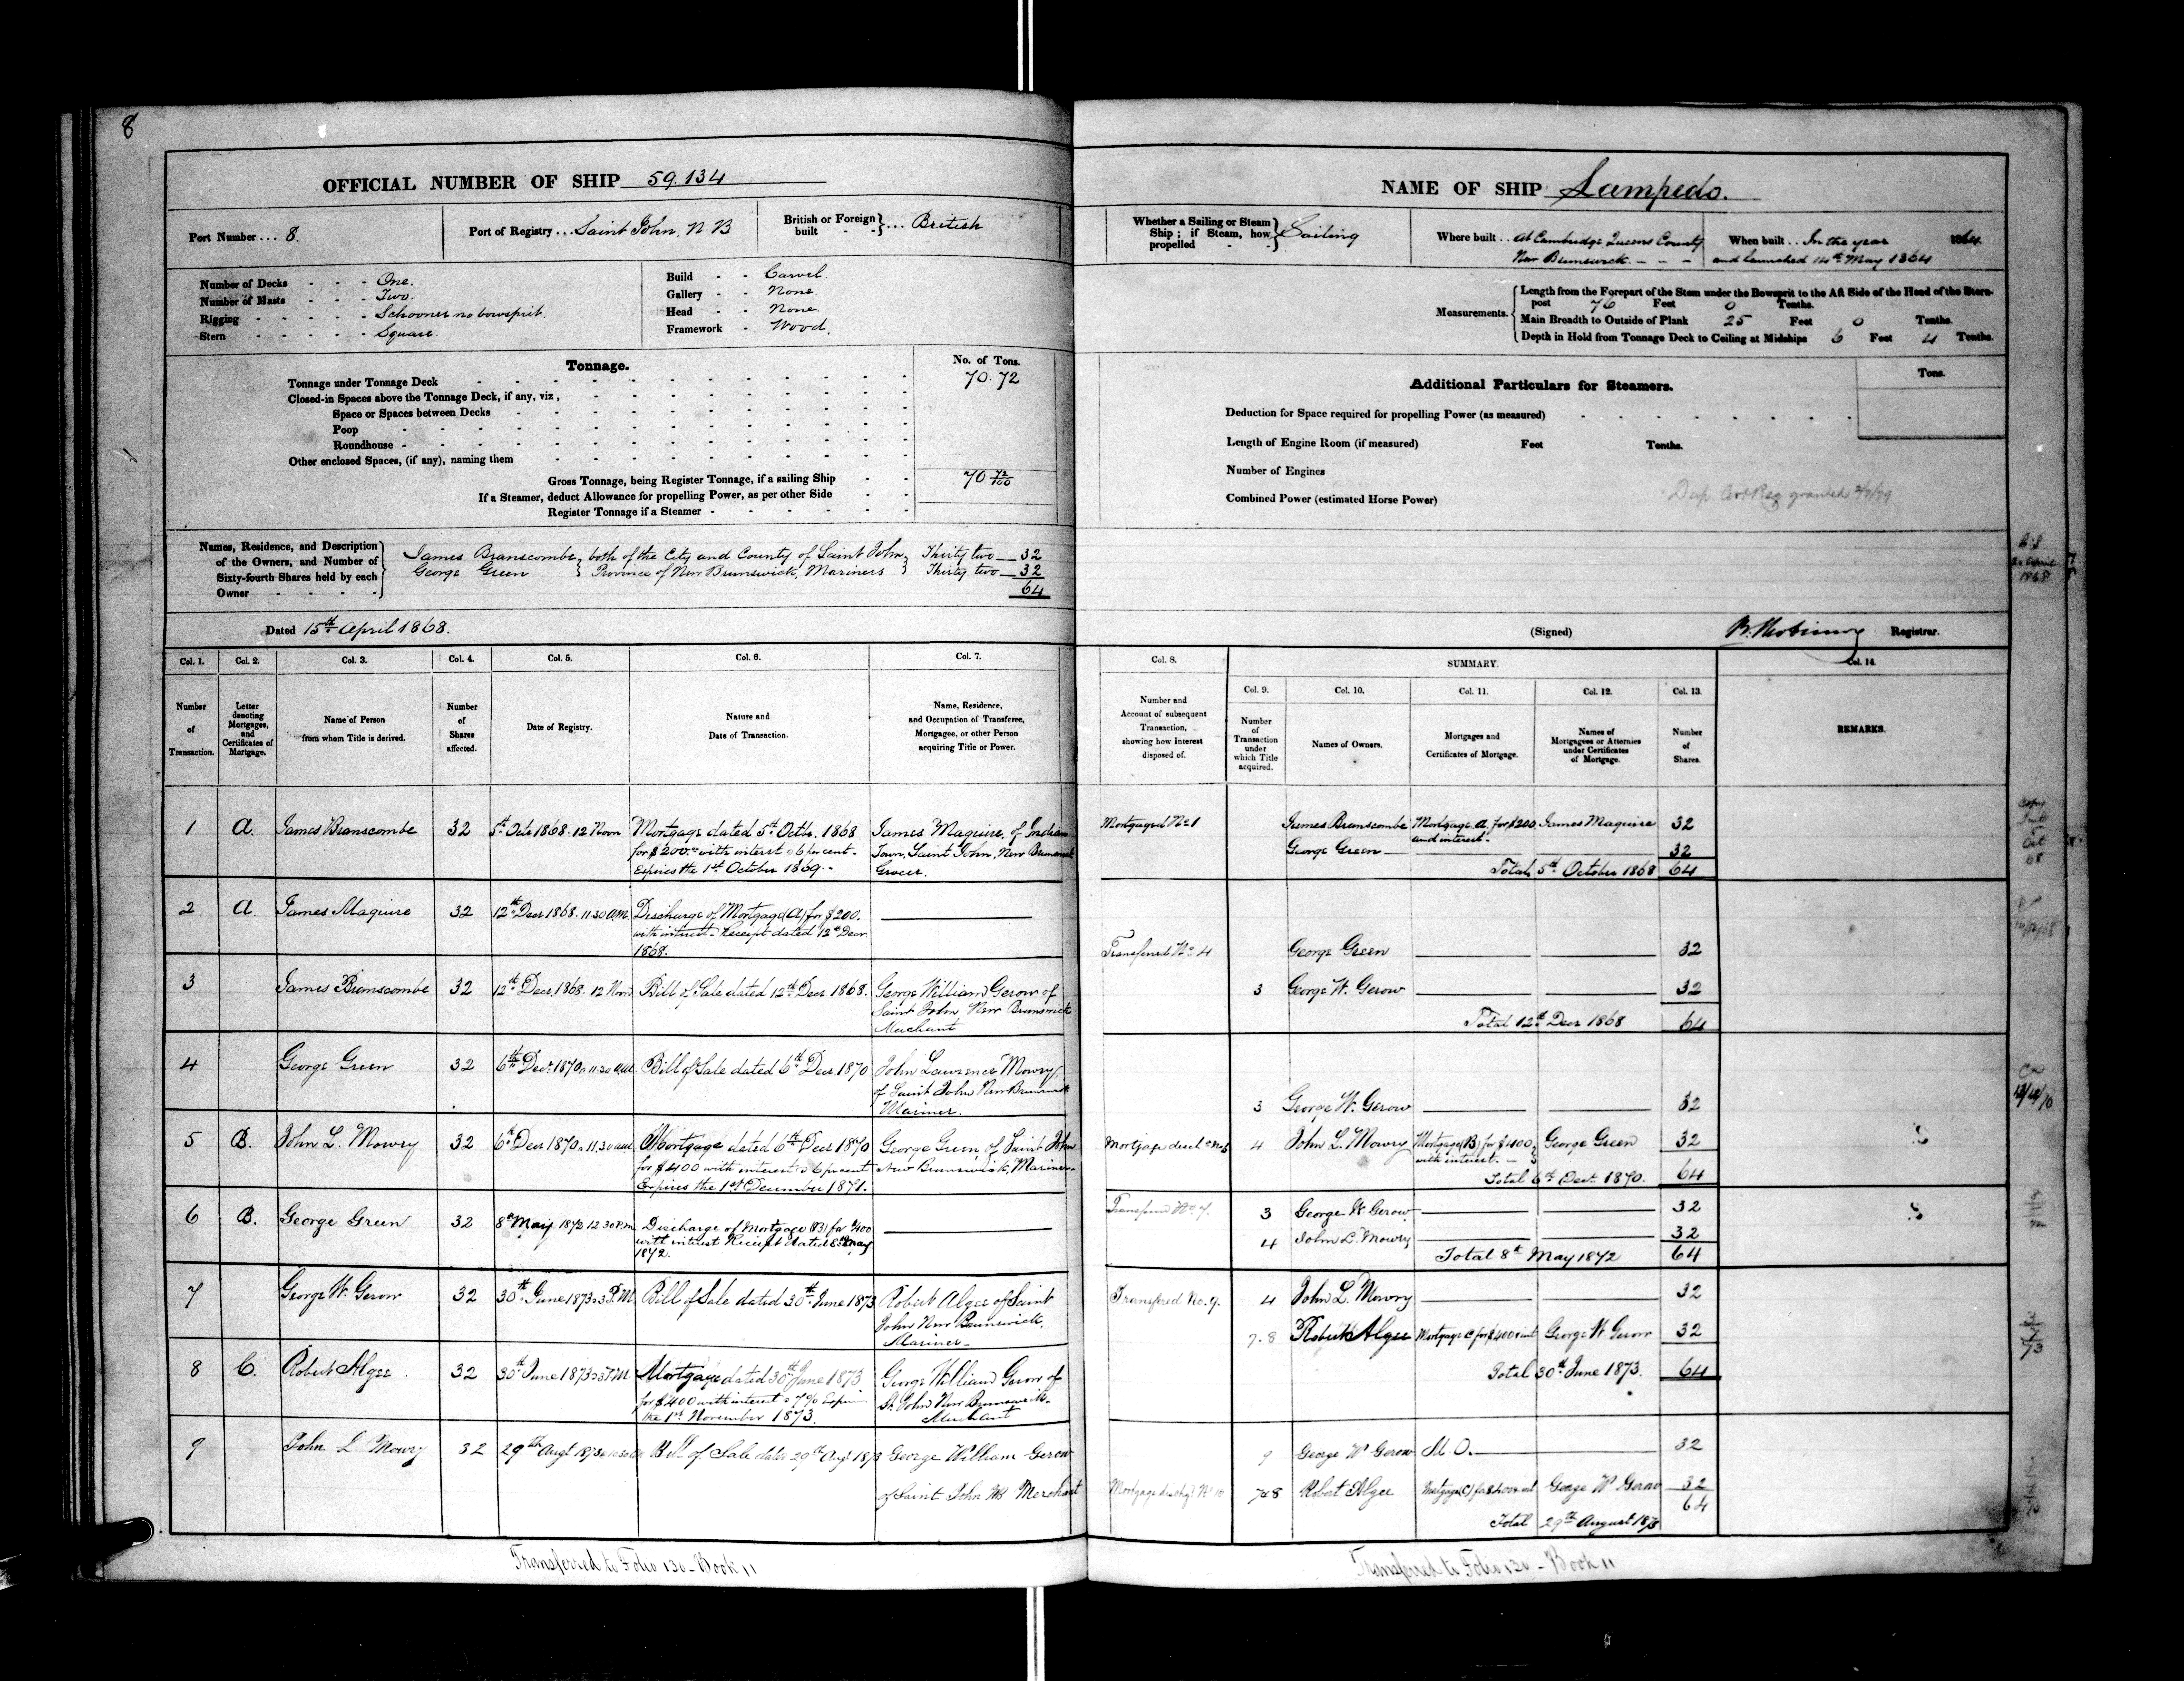 8
OFFICIAL NUMBER OF SHIP 59.134
Port Number ... 8.
Port of Registry ... Saint John, N B
British or Foreign built - - } ... British
Number of Decks - - - One.
Number of Masts - - - Two.
Rigging - - - - - Schooner no bowsprit.
Stern - - - - - Square.
Build - - Carvel.
Gallery - - None.
Head - - None.
Framework - Wood.
Tonnage.
No. of Tons.
Tonnage under Tonnage Deck 70.72
Closed-in Spaces above the Tonnage Deck, if any, viz,
Space or Spaces between Decks
Poop
Roundhouse
Other enclosed Spaces, (if any), naming them
Gross Tonnage, being Register Tonnage, if a sailing Ship - - 70 72/100
If a Steamer, deduct Allowance for propelling Power, as per other Side
Register Tonnage if a Steamer
Names, Residence, and Description of the Owners, and Number of Sixty-fourth Shares held by each Owner
James Branscombe } both of the City and County of Saint John } Thirty two 32
George Green } Province of New Brunswick, Mariners } Thirty two 32
64
Dated 15th April 1868.
NAME OF SHIP Lampedo.
Whether a Sailing or Steam Ship; if Steam, how propelled } Sailing
Where built .. At Cambridge Queens County
New Brunswick. - - -
When built .. In the year 1864
and launched 14th May 1864
Measurements.
Length from the Forepart of the Stem under the Bowsprit to the Aft Side of the Head of the Stern-
post 76 Feet 0 Tenths.
Main Breadth to Outside of Plank 25 Feet 0 Tenths.
Depth in Hold from Tonnage Deck to Ceiling at Midships 6 Feet 4 Tenths.
Additional Particulars for Steamers.
Tons.
Deduction for Space required for propelling Power (as measured)
Length of Engine Room (if measured) Feet Tenths.
Number of Engines
Combined Power (estimated Horse Power)
granted
(Signed) Registrar.
Col. 1. Col. 2. Col. 3. Col. 4. Col. 5. Col. 6. Col. 7.
Number of Transaction.
Letter denoting Mortgages, and Certificates of Mortgage.
Name of Person from whom Title is derived.
Number of Shares affected.
Date of Registry.
Nature and Date of Transaction.
Name, Residence, and Occupation of Transferee, Mortgagee, or other Person acquiring Title or Power.
1 A. James Branscombe 32 5th Octr 1868. 12 Noon Mortgage dated 5th Octbr. 1868 James Maguire, of Indian
for $200.00 with interest @ 6 per cent. Town, Saint John, New Brunswick
Expires the 1st October 1869. Grocer.
2 A. James Maguire 32 12th Decr 1868. 11.30 A.M. Discharge of Mortgage (A) for $200.
with interest. Receipt dated 12th Decr
1868.
3 James Branscombe 32 12th Decr 1868. 12 Noon Bill of Sale dated 12th Decr. 1868. George William Gerow of
Saint John New Brunswick
Merchant
4 George Green 32 6th Decr 1870 11.30 a.m. Bill of Sale dated 6th Decr. 1870 John Lawrence Mowry
of Saint John New Brunswick
Mariner.
5 B. John L. Mowry 32 6th Decr 1870 11.30 a.m. Mortgage dated 6th Decr 1870 George Green, of Saint John
for $400 with interest @ 6 pr cent New Brunswick, Mariner
Expires the 1st December 1871.
6 B. George Green 32 8th May 1872 12.30 P.m. Discharge of Mortgage (B) for $400
with interest Receipt dated 8th May
1872.
7 George W. Gerow 32 30th June 1873 3 P.M. Bill of Sale dated 30th June 1873 Robert Algee of Saint
John New Brunswick,
Mariner
8 C. Robert Algee 32 30th June 1873 3 P.M. Mortgage dated 30th June 1873 George William Gerow of
for $400 with interest @ 7% St. John New Brunswick
the 1st November 1873. Merchant
9 John L Mowry 32 29th Augt 1873 Bill of Sale date 29th Augt 1873 George William Gerow
of Saint John NB Merchant
Col. 8. SUMMARY. Col. 14.
Col. 9. Col. 10. Col. 11. Col. 12. Col. 13.
Number and Account of subsequent Transaction, showing how Interest disposed of.
Number of Transaction under which Title acquired.
Names of Owners.
Mortgages and Certificates of Mortgage.
Names of Mortgagees or Attornies under Certificates of Mortgage.
Number of Shares.
REMARKS.
Mortgaged No 1 James Branscombe Mortgage A. for $200 James Maguire 32
and interest.
George Green 32
Total 5th October 1868 64
Transferred No 4 George Green 32
3 George W. Gerow 32
Total 12th Decr 1868 64
3 George W. Gerow 32
4 John L. Mowry Mortgage (B) for $400 George Green 32
with interest.
Total 6th Decr. 1870. 64
Transferred No 7. 3 George W Gerow 32
4 John L. Mowry 32
Total 8th May 1872 64
Transferred No. 9. 4 John L. Mowry 32
7.8 Robert Algee Mortgage C for $400 George W Gerow 32
Total 30th June 1873. 64
9 George W Gerow 32
7&8 Robert Algee Mortgage (C) for $400 George W Gerow 32
64
Total 29th August 1873
Transferred to Folio 130 - Book 11
Transferred to Folio 130 - Book 11